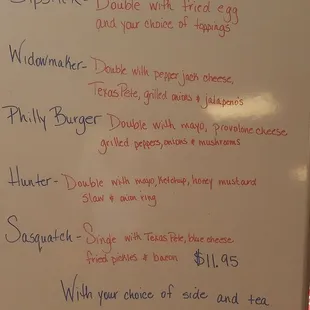 Double with fried egg
and your choice of toppings
Widowmaker- Double with pepper jack cheese,
Texas Pete, grilled onions & jalapeno's
Philly Burger Double with mayo, provolone cheese
grilled peppers, onions & mushrooms
Hunter- Double with mayo, Ketchup, honey mustard
Slaw & onion ring
Sasquatch- Single with Texas Pete, blue cheese
fried pickles & bacon $11.95
With your choice of side and tea